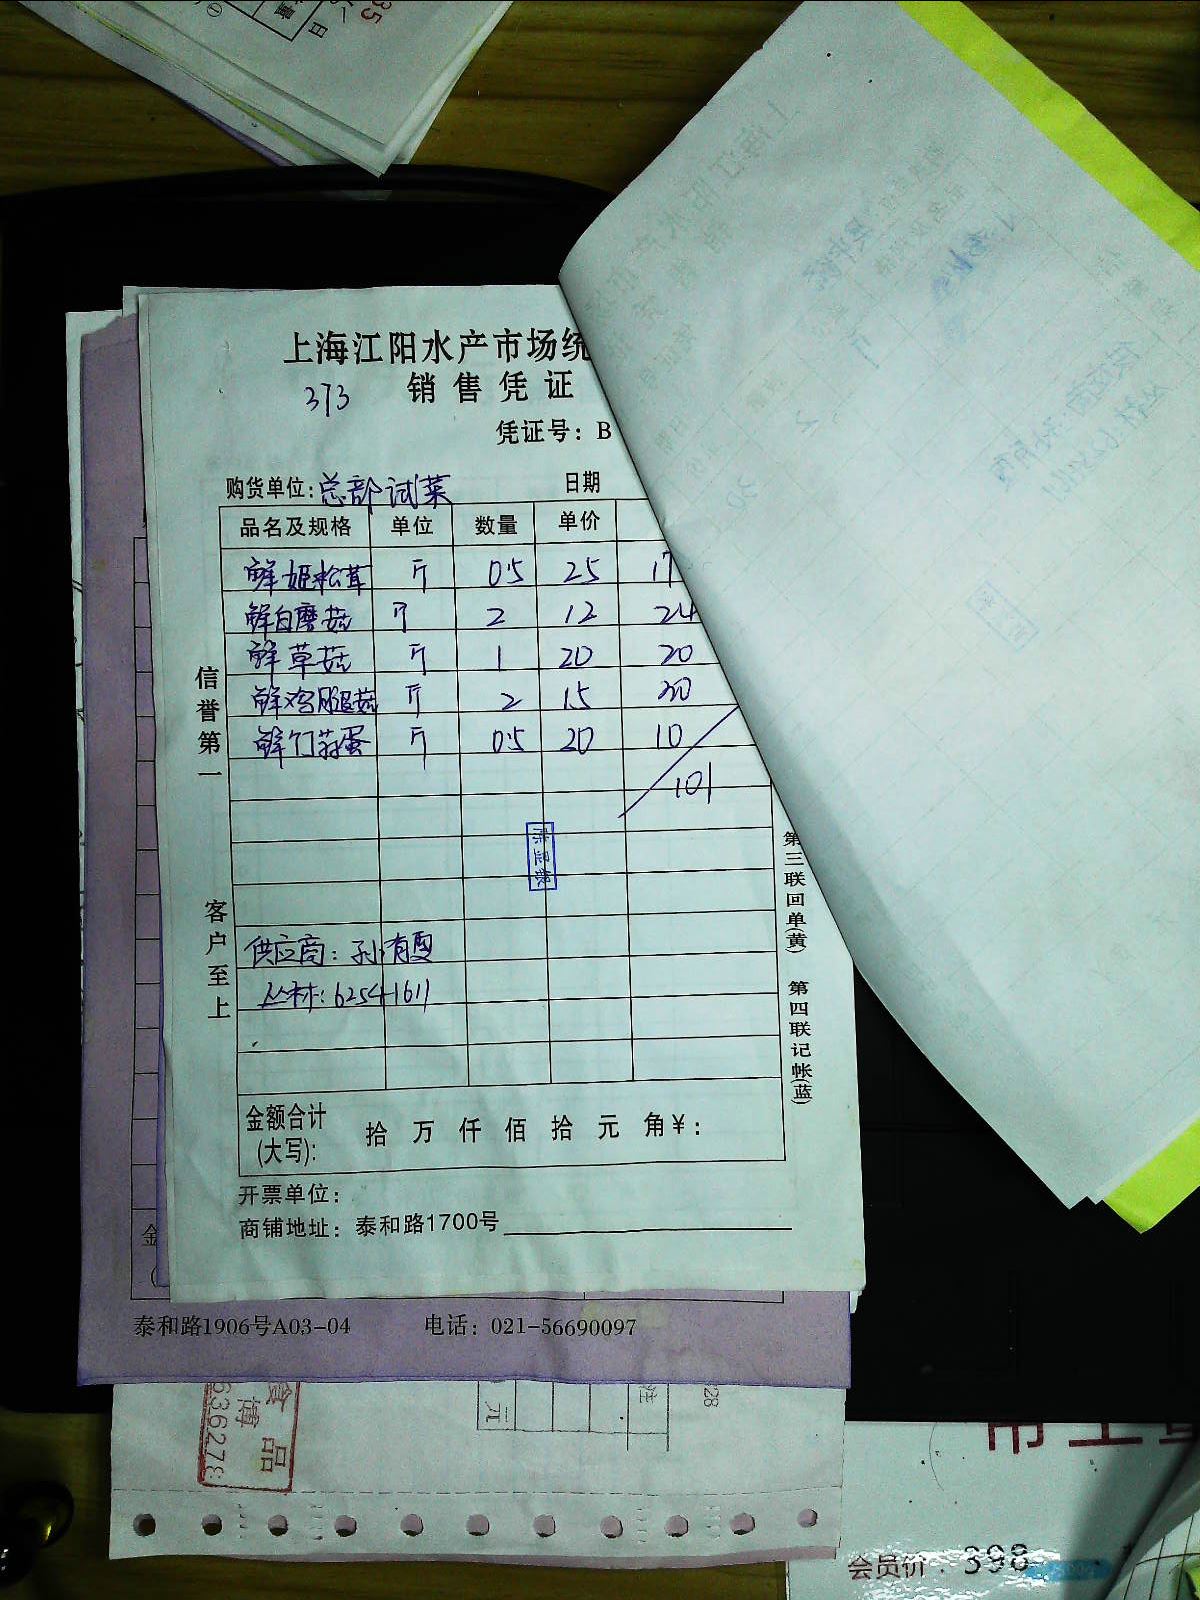 上海江阳水产市场统
373 销售凭证
凭证号：B
购货单位：总部试菜 日期
品名及规格 单位 数量 单价
鲜姬松茸 斤 0.5 25 17
鲜白磨菇 斤 2 12 24
鲜草菇 斤 1 20 20
鲜鸡腿菇 斤 2 15 30
鲜竹荪蛋 斤 0.5 20 10
101
信誉第一
客户至上
供应商：孙有雯
丛林：62541611
第三联回单(黄) 第四联记帐(蓝)
金额合计(大写)： 拾 万 仟 佰 拾 元 角¥：
开票单位：
商铺地址：泰和路1700号
泰和路1906号A03-04 电话：021-56690097
食品
博
636278
元
注
会员价：398